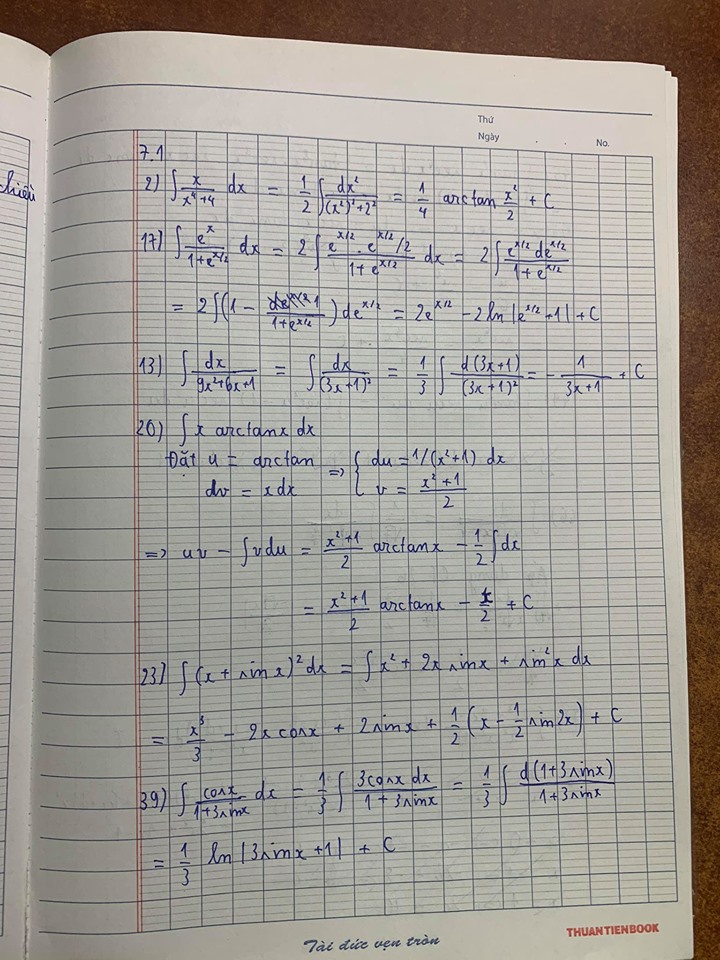 chiều
Thứ
Ngày . . No.
7.1
2) ∫ x/(x⁴+4) dx = 1/2 ∫ dx²/((x²)²+2²) = 1/4 arctan x²/2 + C
17) ∫ eˣ/(1+e^(x/2)) dx = 2 ∫ (e^(x/2) · e^(x/2)/2)/(1+e^(x/2)) dx = 2 ∫ (e^(x/2) de^(x/2))/(1+e^(x/2))
= 2 ∫ (1 - 1/(1+e^(x/2))) de^(x/2) = 2e^(x/2) - 2 ln |e^(x/2) + 1| + C
13) ∫ dx/(9x²+6x+1) = ∫ dx/(3x+1)² = 1/3 ∫ d(3x+1)/(3x+1)² = - 1/(3x+1) + C
20) ∫ x arctanx dx
Đặt u = arctan ⇒ { du = 1/(x²+1) dx
dv = xdx v = (x²+1)/2
⇒ uv - ∫ vdu = (x²+1)/2 arctanx - 1/2 ∫ dx
= (x²+1)/2 arctanx - x/2 + C
23) ∫ (x + sin x)² dx = ∫ x² + 2x sinx + sin²x dx
= x³/3 - 2x cosx + 2sinx + 1/2 (x - 1/2 sin2x) + C
39) ∫ cosx/(1+3sinx) dx = 1/3 ∫ (3cosx dx)/(1+3sinx) = 1/3 ∫ d(1+3sinx)/(1+3sinx)
= 1/3 ln |3sinx + 1| + C
Tài đức vẹn tròn
THUANTIENBOOK